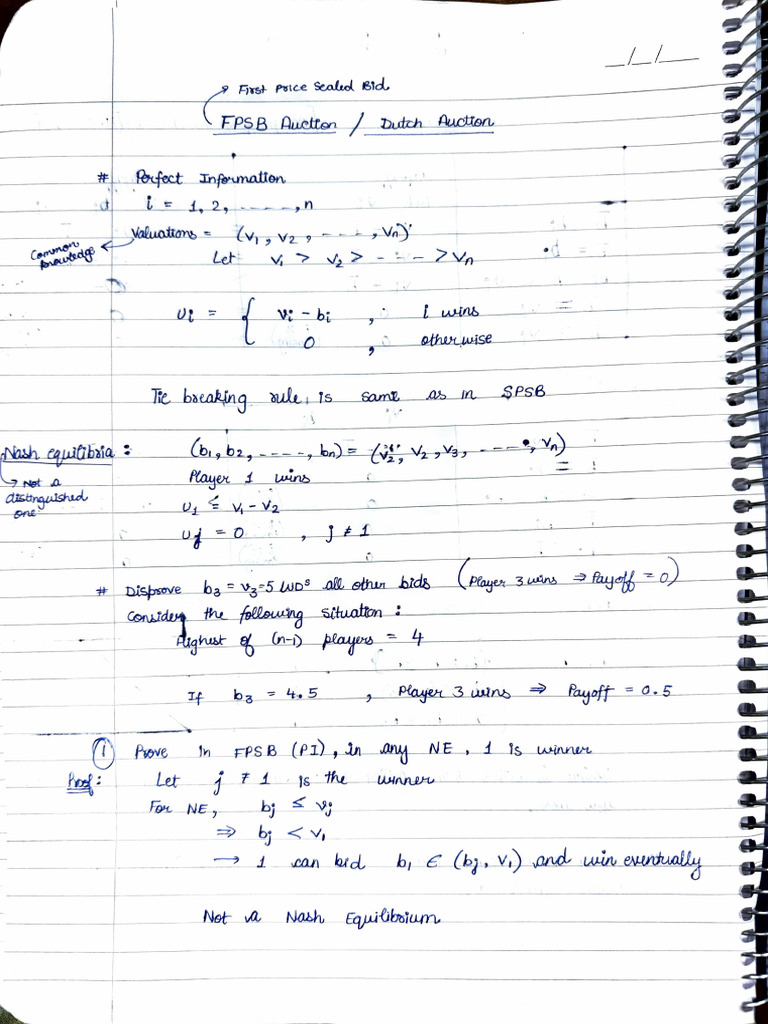 _/_/_
First Price Sealed Bid
FPSB Auction / Dutch Auction
# Perfect Information
i = 1, 2, -----, n
Valuations = (v₁, v₂, ----, vₙ)
Common knowledge
Let v₁ > v₂ > ---- > vₙ
uᵢ = { vᵢ - bᵢ , i wins
0 , otherwise
Tie breaking rule is same as in SPSB
Nash equilibria : (b₁, b₂, ----, bₙ) = (v₂, v₂, v₃, -----, vₙ)
Not a distinguished one
Player 1 wins
u₁ = v₁ - v₂
uⱼ = 0 , j ≠ 1
# Disprove b₃ = v₃ = 5 WDˢ all other bids (Player 3 wins ⇒ Payoff = 0)
Consider the following situation :
Highest of (n-1) players = 4
If b₃ = 4.5 , Player 3 wins ⇒ Payoff = 0.5
① Prove in FPSB (PI), in any NE, 1 is winner
Proof: Let j ≠ 1 is the winner
For NE, bⱼ ≤ vⱼ
⇒ bⱼ < v₁
→ 1 can bid b₁ ∈ (bⱼ, v₁) and win eventually
Not a Nash Equilibrium